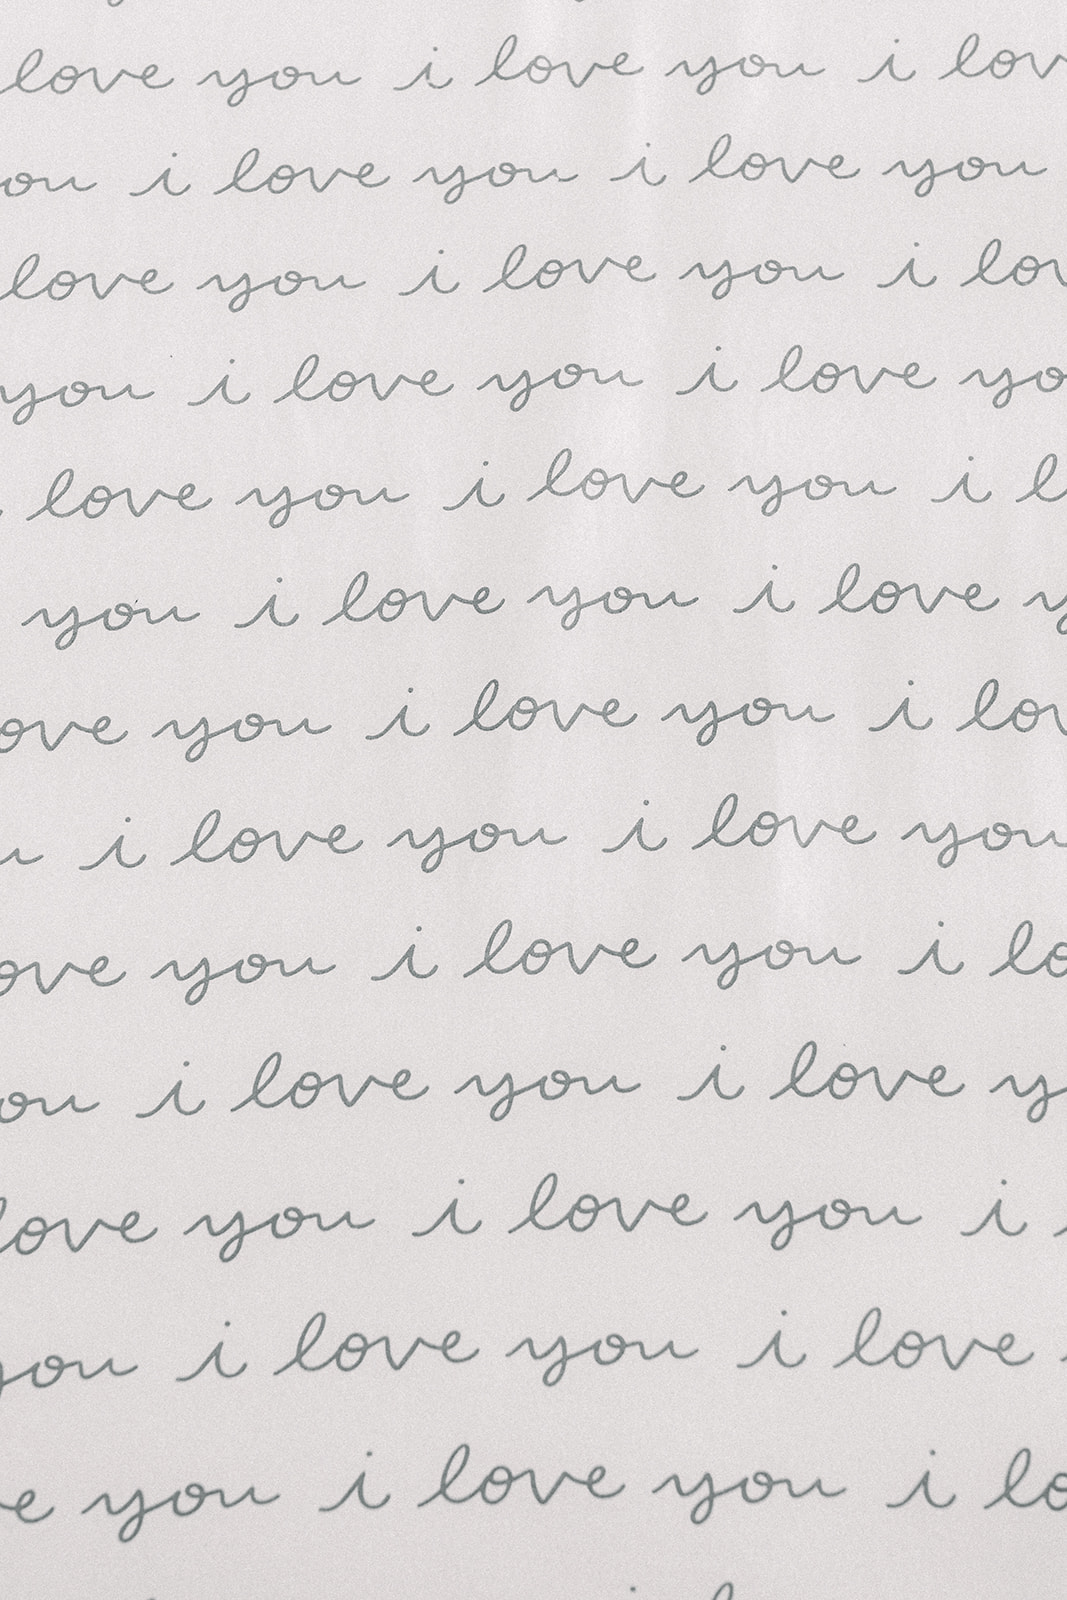 love you i love you i lov
ou i love you i love you
love you i love you i lov
you i love you i love yo
love you i love you i l
you i love you i love y
ove you i love you i lov
u i love you i love you
ove you i love you i lo
ou i love you i love y
love you i love you i
you i love you i love
ve you i love you i lo